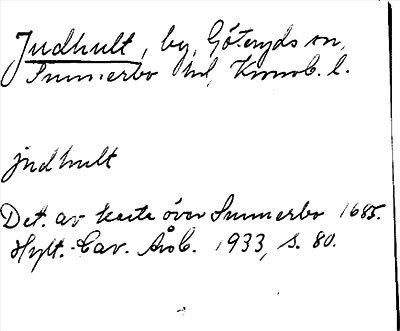 Judhult, by, Göteryds sn,
Sunnerbo hd, Kronob. l.
judhult
Det. av karta över Sunnerbo 1685.
Hylt.-Cav. Årsb. 1933, s. 80.